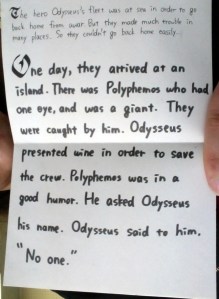 The hero Odysseus's fleet was at sea in order to go
back home from war. But they made much trouble in
many places. So they couldn't go back home easily...
One day, they arrived at an
island. There was Polyphemos who had
one eye, and was a giant. They
were caught by him. Odysseus
presented wine in order to save
the crew. Polyphemos was in a
good humor. He asked Odysseus
his name. Odysseus said to him.
"No one."